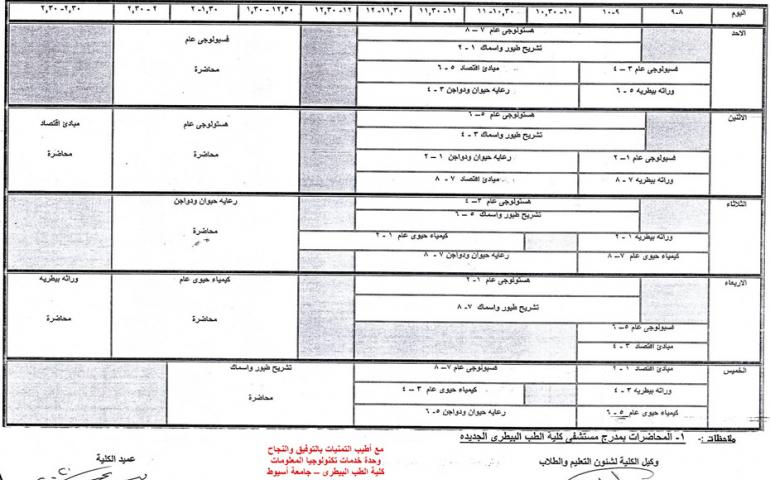 اليوم ٨-٩ ٩-١٠ ١٠-١٠,٣٠ ١٠,٣٠-١١ ١١-١١,٣٠ ١١,٣٠-١٢ ١٢-١٢,٣٠ ١٢,٣٠-١,٣٠ ١,٣٠-٢ ٢-٢,٣٠ ٢,٣٠-٣,٣٠
الاحد هستولوجى عام ٧-٨ فسيولوجى عام
تشريح طيور واسماك ١-٢
فسيولوجى عام ٣-٤ مبادئ اقتصاد ٥-٦ محاضرة
وراثه بيطريه ٥-٦ رعايه حيوان ودواجن ٣-٤
الاثنين هستولوجى عام ٥-٦ هستولوجى عام مبادئ اقتصاد
تشريح طيور واسماك ٣-٤
فسيولوجى عام ١-٢ رعايه حيوان ودواجن ١-٢ محاضرة محاضرة
وراثه بيطريه ٧-٨ مبادئ اقتصاد ٧-٨
الثلاثاء هستولوجى عام ٣-٤ رعايه حيوان ودواجن
تشريح طيور واسماك ٥-٦
وراثه بيطريه ١-٢ كيمياء حيوى عام ١-٢ محاضرة
كيمياء حيوى عام ٧-٨ رعايه حيوان ودواجن ٧-٨
الاربعاء هستولوجى عام ١-٢ كيمياء حيوى عام وراثه بيطريه
تشريح طيور واسماك ٧-٨
فسيولوجى عام ٥-٦ محاضرة محاضرة
مبادئ اقتصاد ٣-٤
الخميس مبادئ اقتصاد ١-٢ فسيولوجى عام ٧-٨ تشريح طيور واسماك
وراثه بيطريه ٣-٤ كيمياء حيوى عام ٣-٤
كيمياء حيوى عام ٥-٦ رعايه حيوان ودواجن ٥-٦ محاضرة
ملاحظات :- ١- المحاضرات بمدرج مستشفى كلية الطب البيطرى الجديده
وكيل الكلية لشئون التعليم والطلاب
مع أطيب التمنيات بالتوفيق والنجاح
وحدة خدمات تكنولوجيا المعلومات
كلية الطب البيطرى – جامعة أسيوط
عميد الكلية